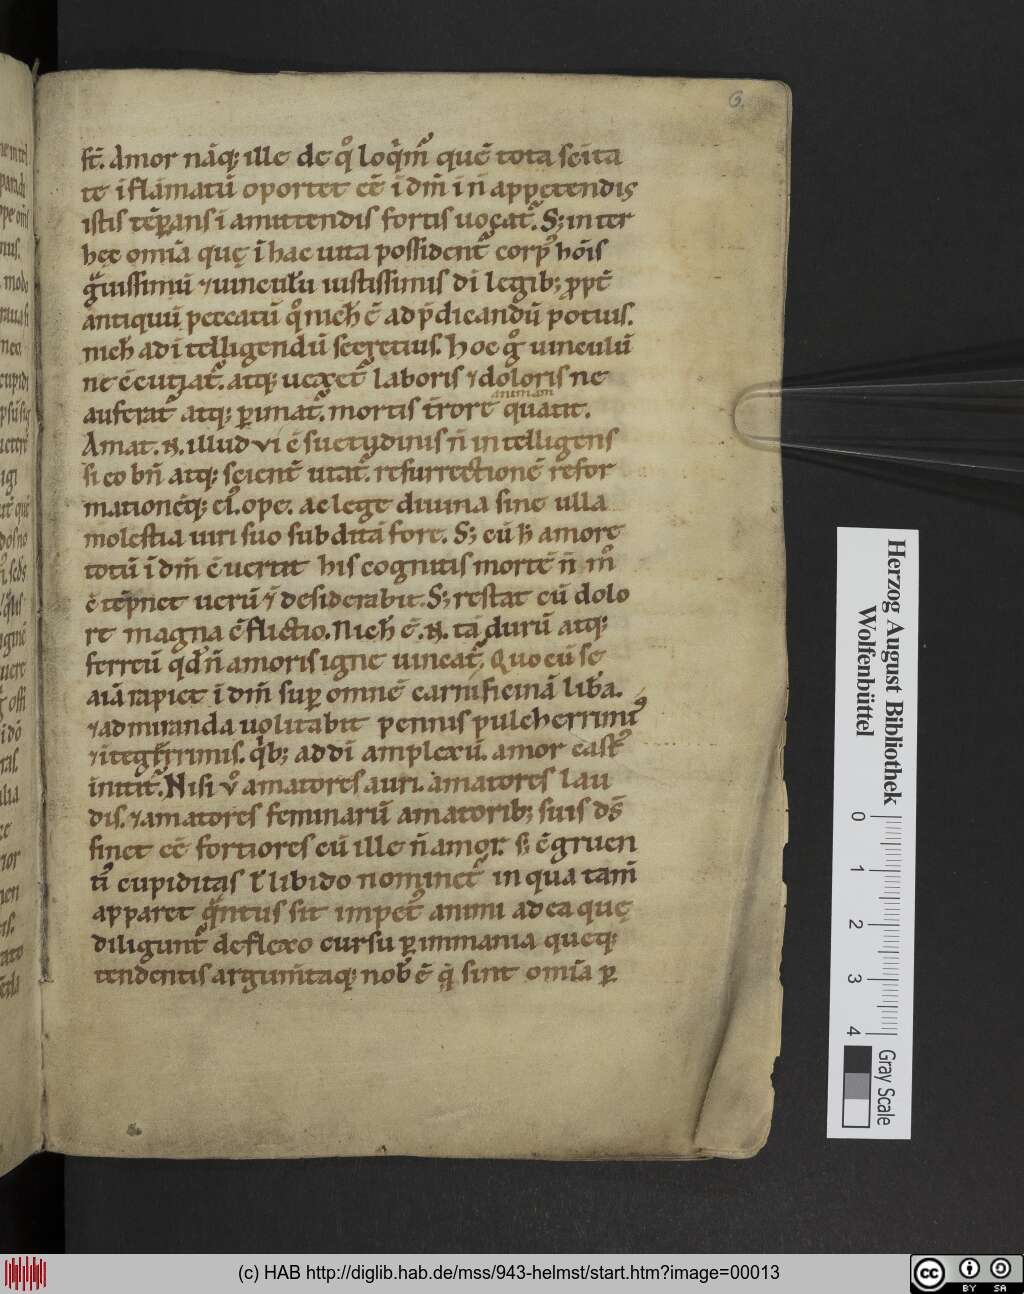 6.
st̄. Amor nāq; ille de q̊ loq̇m᷑ quē tota scīta
te īflāmatū oportet eē ī dm̄ ī n̄ appetendis
istis tēꝑans ī amittendis fortis uocat᷑. S; inter
hęc omīa quę ī hac uita possident᷑ corpꝰ hōis
g̊uissimū ⁊ uinculū iustissimis dī legib; ꝓpt̄
antiquū peccatū q̊ nich̄ ē ad p̄dicandū potius.
nich̄ ad ītelligendū secretius. Hoc g̊ uinculū
ne ē cutiat᷑. atq; uexet᷑ laboris ⁊ doloris ne
animam
auferat᷑ atq; ꝑimat᷑. mortis t̄rore quatit.
Amat. n̄. illud vi ē suetudinis n̄ intelligens
si eo bn̄ atq; scient᷑ utat᷑. resurrectionē refor
mationēq; ei᷑. ope. ac lege diuina sine ulla
molestia iuri suo subditā fore. S; cū h̄ amore
totū ī dm̄ ē uertit his cognitis mortē n̄ m̊
ē tēpnet uerū ⁊ desiderabit. S; restat cū dolo
re magna ē flictio. Nich̄ ē. n̄. tā durū atq;
ferreū qd̄ n̄ amoris igne uincat᷑. Quo cū se
aīa rapiet ī dm̄ suꝑ omnē carnificinā lib̄a.
⁊ admiranda uolitabit pennis pulcherrimiꝰ
⁊ ītegerrimis. q̇b; ad dī amplexū. amor castꝰ
īnitit᷑. Nisi v̊ amatores auri. amatores lau
dis. ⁊ amatores feminarū amatorib; suis ds̄
sinet eē fortiores cū ille n̄ amor. s; ē gruen
ti᷑ cupiditas ł libido nominet᷑ in qua tam̄
apparet q̄ntus sit impet᷑ animi ad ea quę
diligunt᷑ deflexo cursu ꝑ immania queq;
tendentis argum̄taq; nob̄ ē q̇ sint omīa ꝑ
Herzog August Bibliothek
Wolfenbüttel
0 1 2 3 4
Gray Scale
(c) HAB http://diglib.hab.de/mss/943-helmst/start.htm?image=00013
cc BY SA